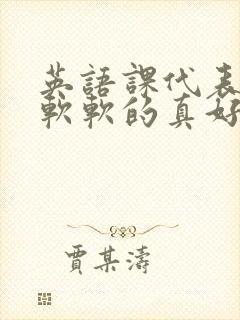 英語課代表
軟軟的真好
賈某濤